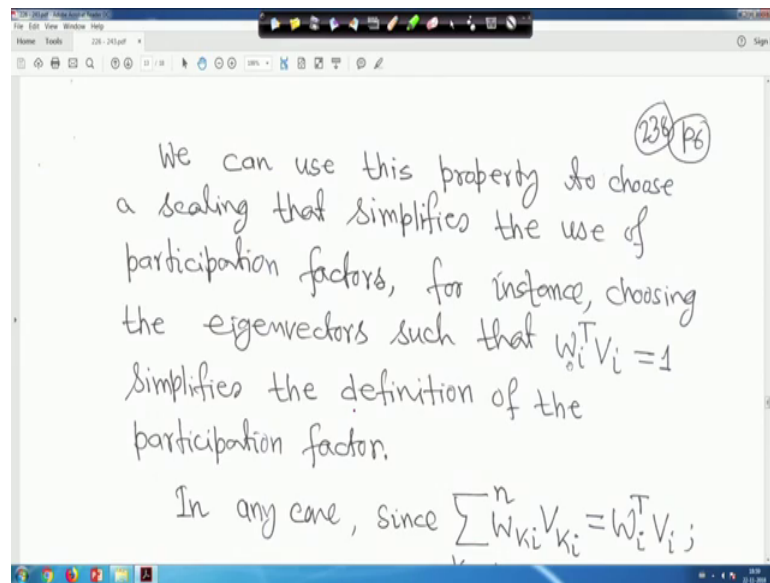 226 - 243.pdf - Adobe Acrobat Reader DC
File Edit View Window Help
Home Tools 226 - 243.pdf × Sign
13 / 18
238 P6
We can use this property to choose
a scaling that simplifies the use of
participation factors, for instance, choosing
the eigenvectors such that Wᵢᵀ Vᵢ = 1
simplifies the definition of the
participation factor.
In any case, since ∑ⁿ W_Ki V_Ki = Wᵢᵀ Vᵢ ;